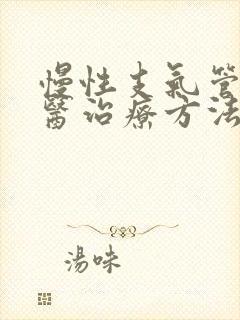 慢性支氣管
醫治療方法
湯味